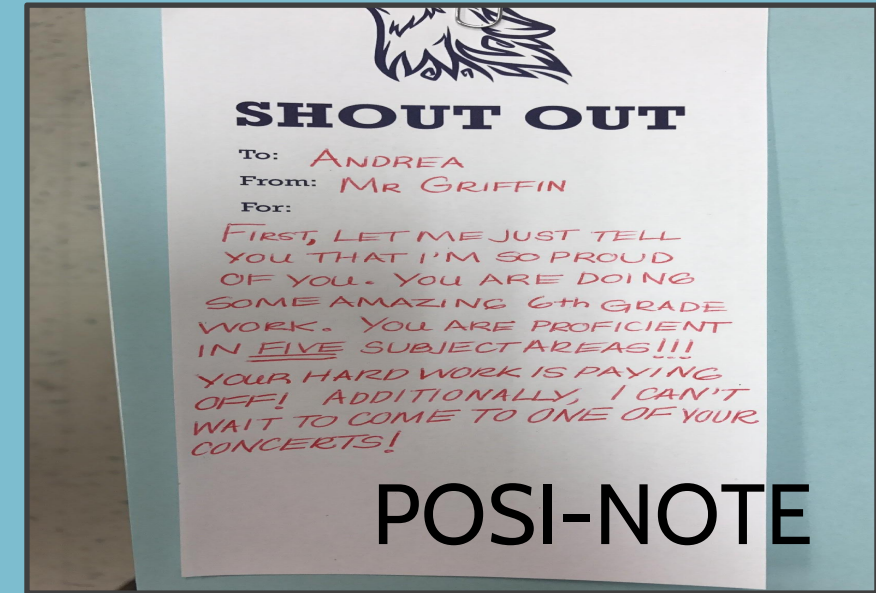 SHOUT OUT
To: ANDREA
From: MR GRIFFIN
For:
FIRST, LET ME JUST TELL
YOU THAT I'M SO PROUD
OF YOU. YOU ARE DOING
SOME AMAZING 6th GRADE
WORK. YOU ARE PROFICIENT
IN FIVE SUBJECT AREAS!!!
YOUR HARD WORK IS PAYING
OFF! ADDITIONALLY, I CAN'T
WAIT TO COME TO ONE OF YOUR
CONCERTS!
POSI-NOTE